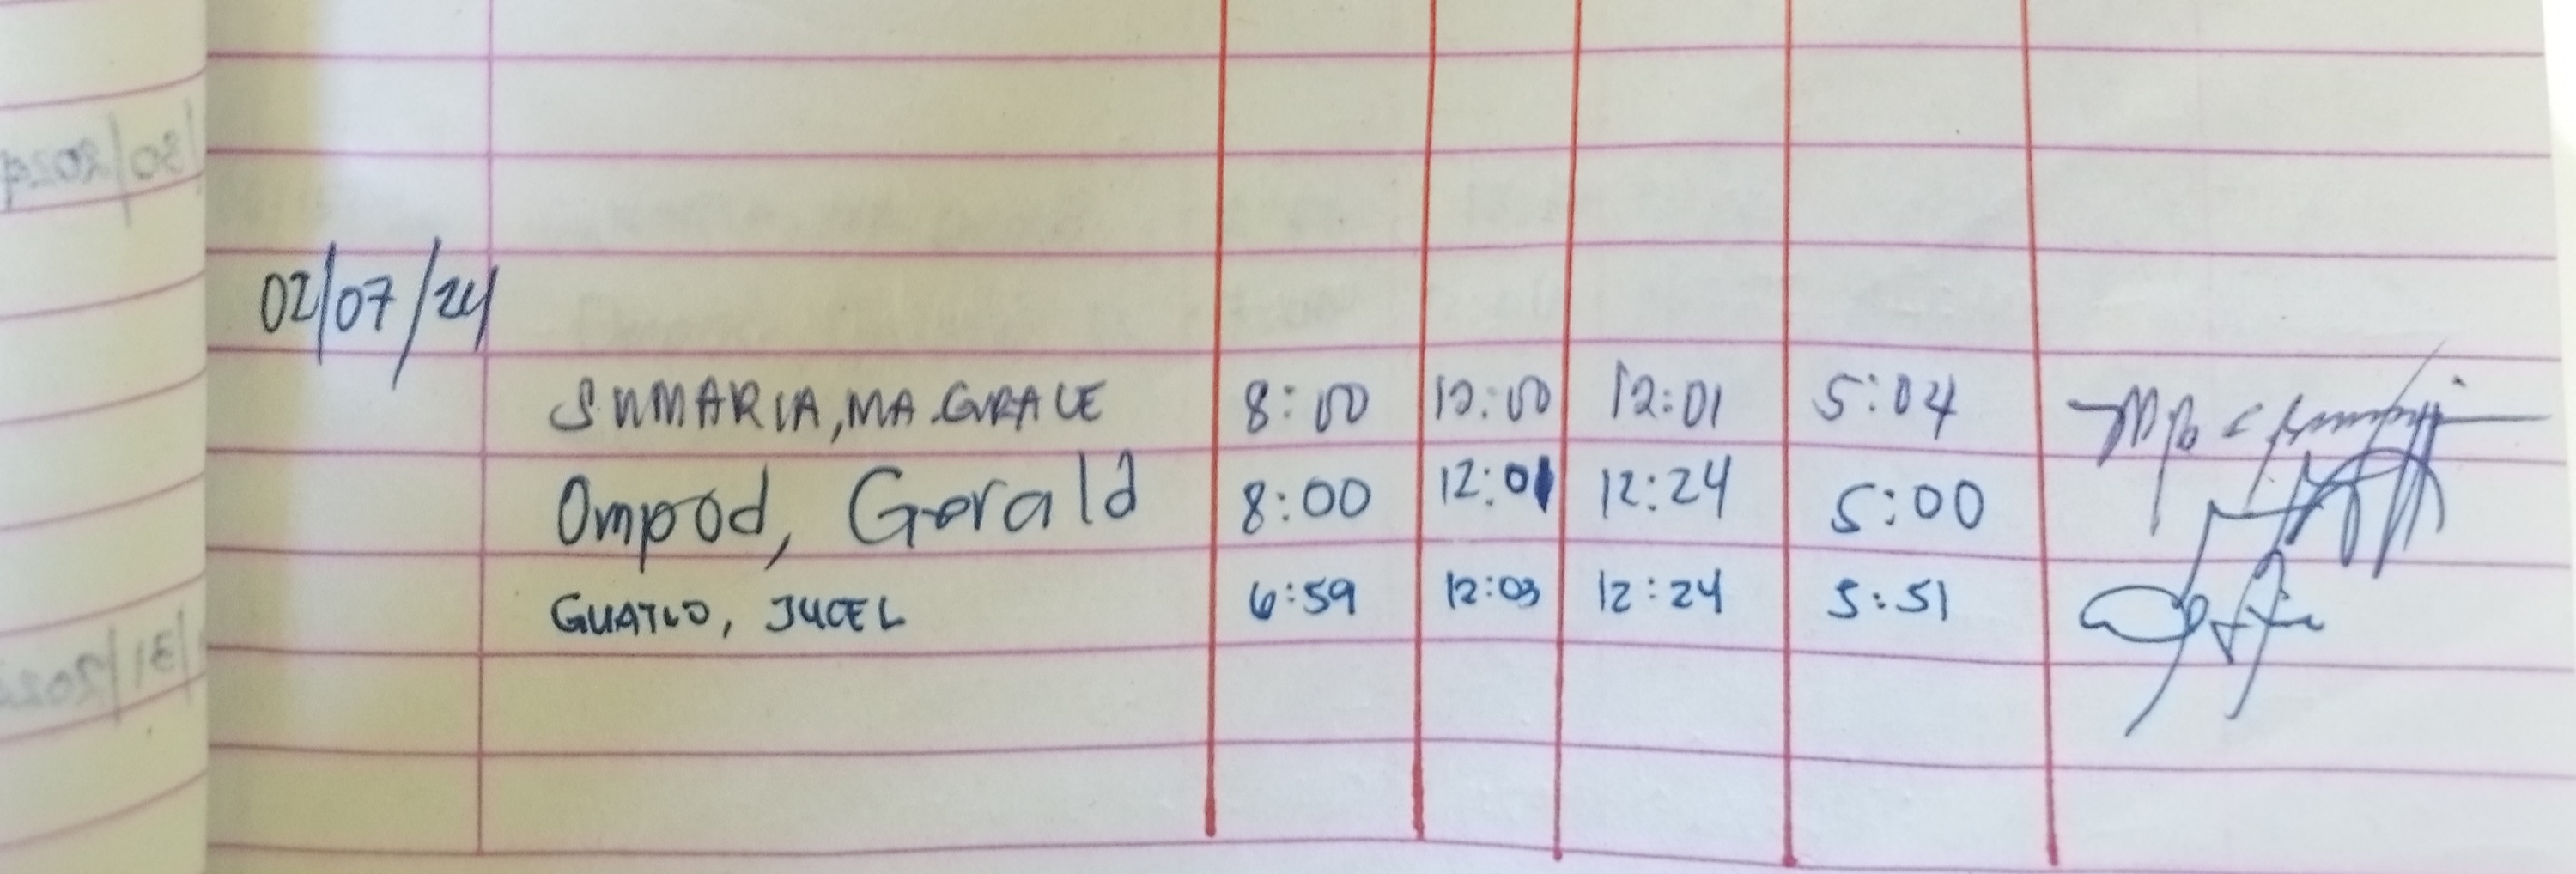 02/07/24
SUMARIA, MA. GRACE 8:00 12:00 12:01 5:04
Ompod, Gerald 8:00 12:01 12:24 5:00
JUCEL 6:59 12:03 12:24 5:51